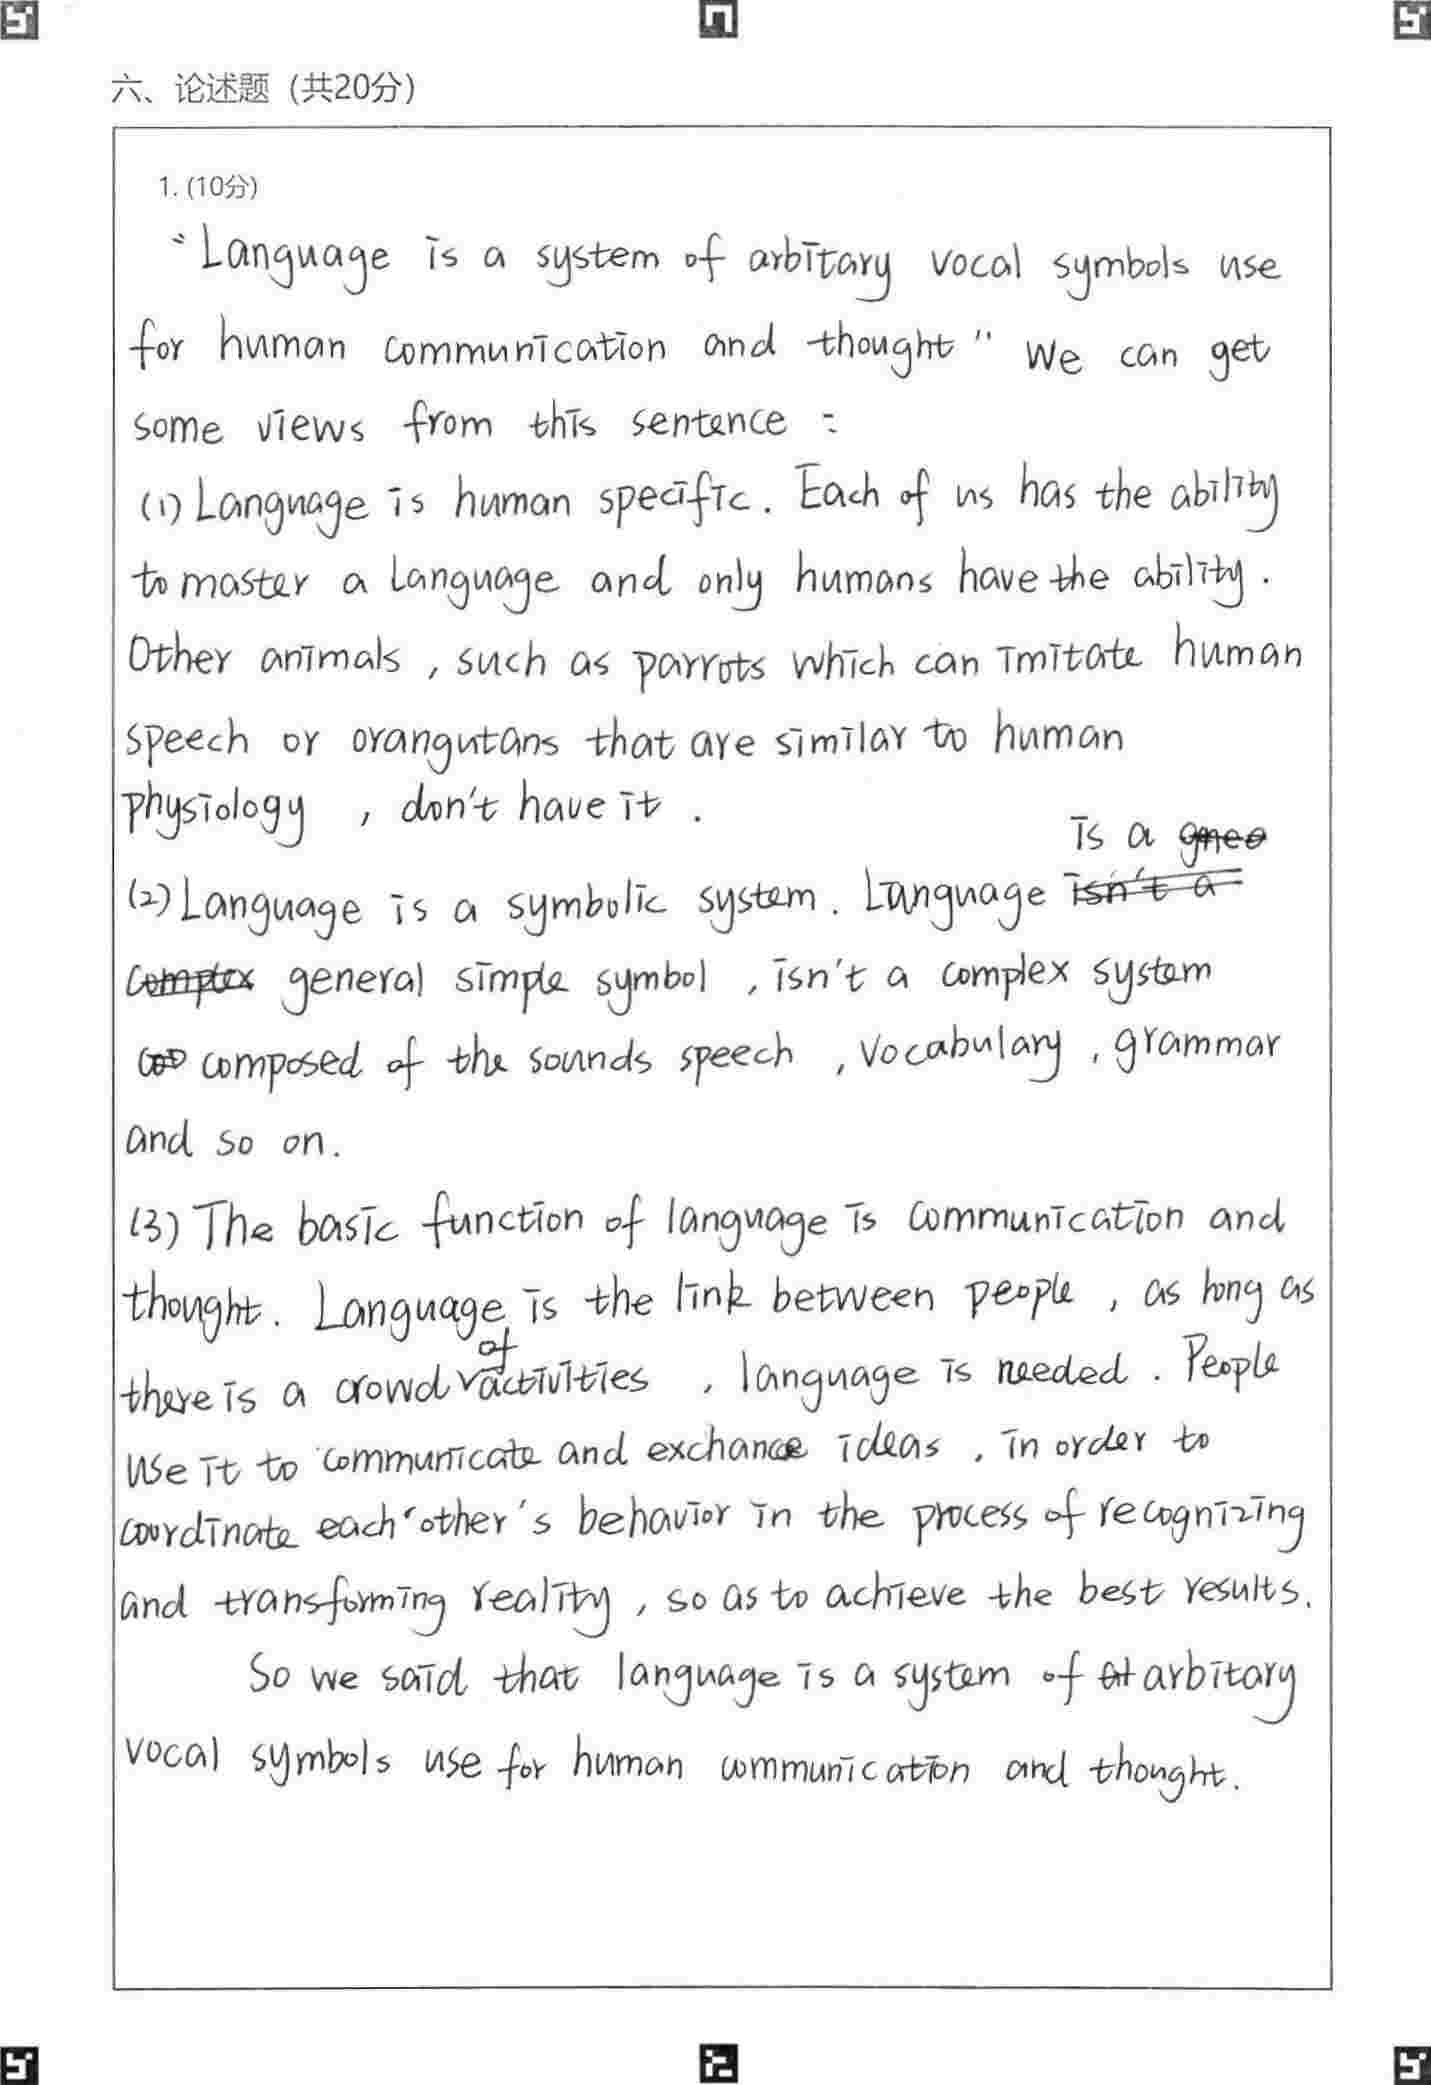 六、论述题（共20分）
1. (10分)
"Language is a system of arbitary vocal symbols use
for human communication and thought" We can get
some views from this sentence :
(1) Language is human specific. Each of us has the ability
to master a language and only humans have the ability.
Other animals, such as parrots which can imitate human
speech or orangutans that are similar to human
physiology, don't have it.
is a
(2) Language is a symbolic system. Language isn't a
complex general simple symbol, isn't a complex system
composed of the sounds speech, vocabulary, grammar
and so on.
(3) The basic function of language is communication and
thought. Language is the link between people, as long as
there is a crowd of activities, language is needed. People
use it to communicate and exchance ideas, in order to
coordinate each other's behavior in the process of recognizing
and transforming reality, so as to achieve the best results.
So we said that language is a system of arbitary
vocal symbols use for human communication and thought.